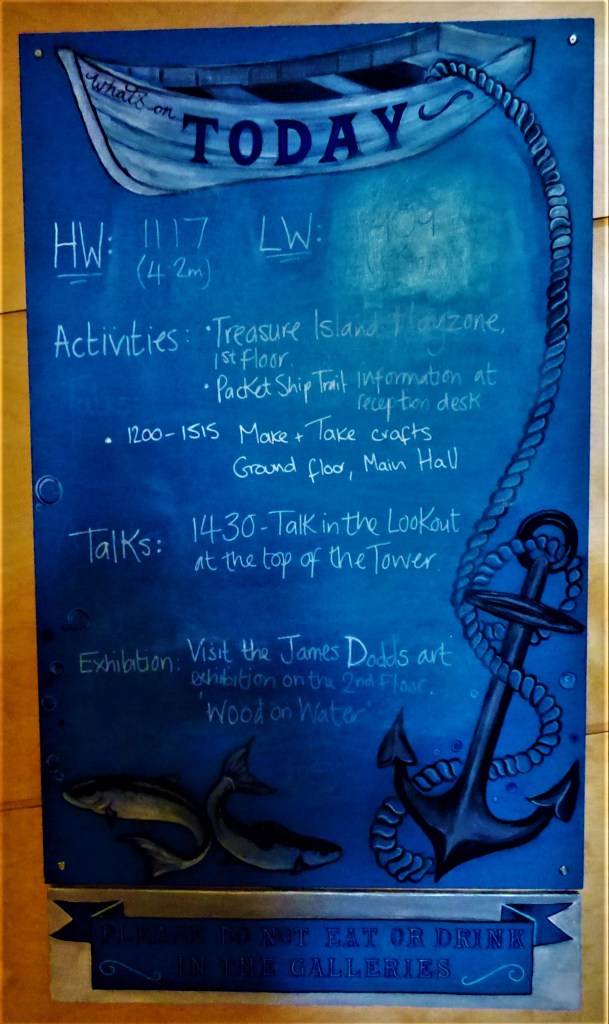 What's on
TODAY
HW: 1117 LW:
(4.2m)
Activities: • Treasure Island Playzone,
1st floor
• Packet Ship Trail information at
reception desk
• 1200-1515 Make + Take crafts
Ground floor, Main Hall
Talks: 14.30 - Talk in the Lookout
at the top of the Tower.
Exhibition: Visit the James Dodds art
exhibition on the 2nd floor.
'Wood on Water'
PLEASE DO NOT EAT OR DRINK
IN THE GALLERIES